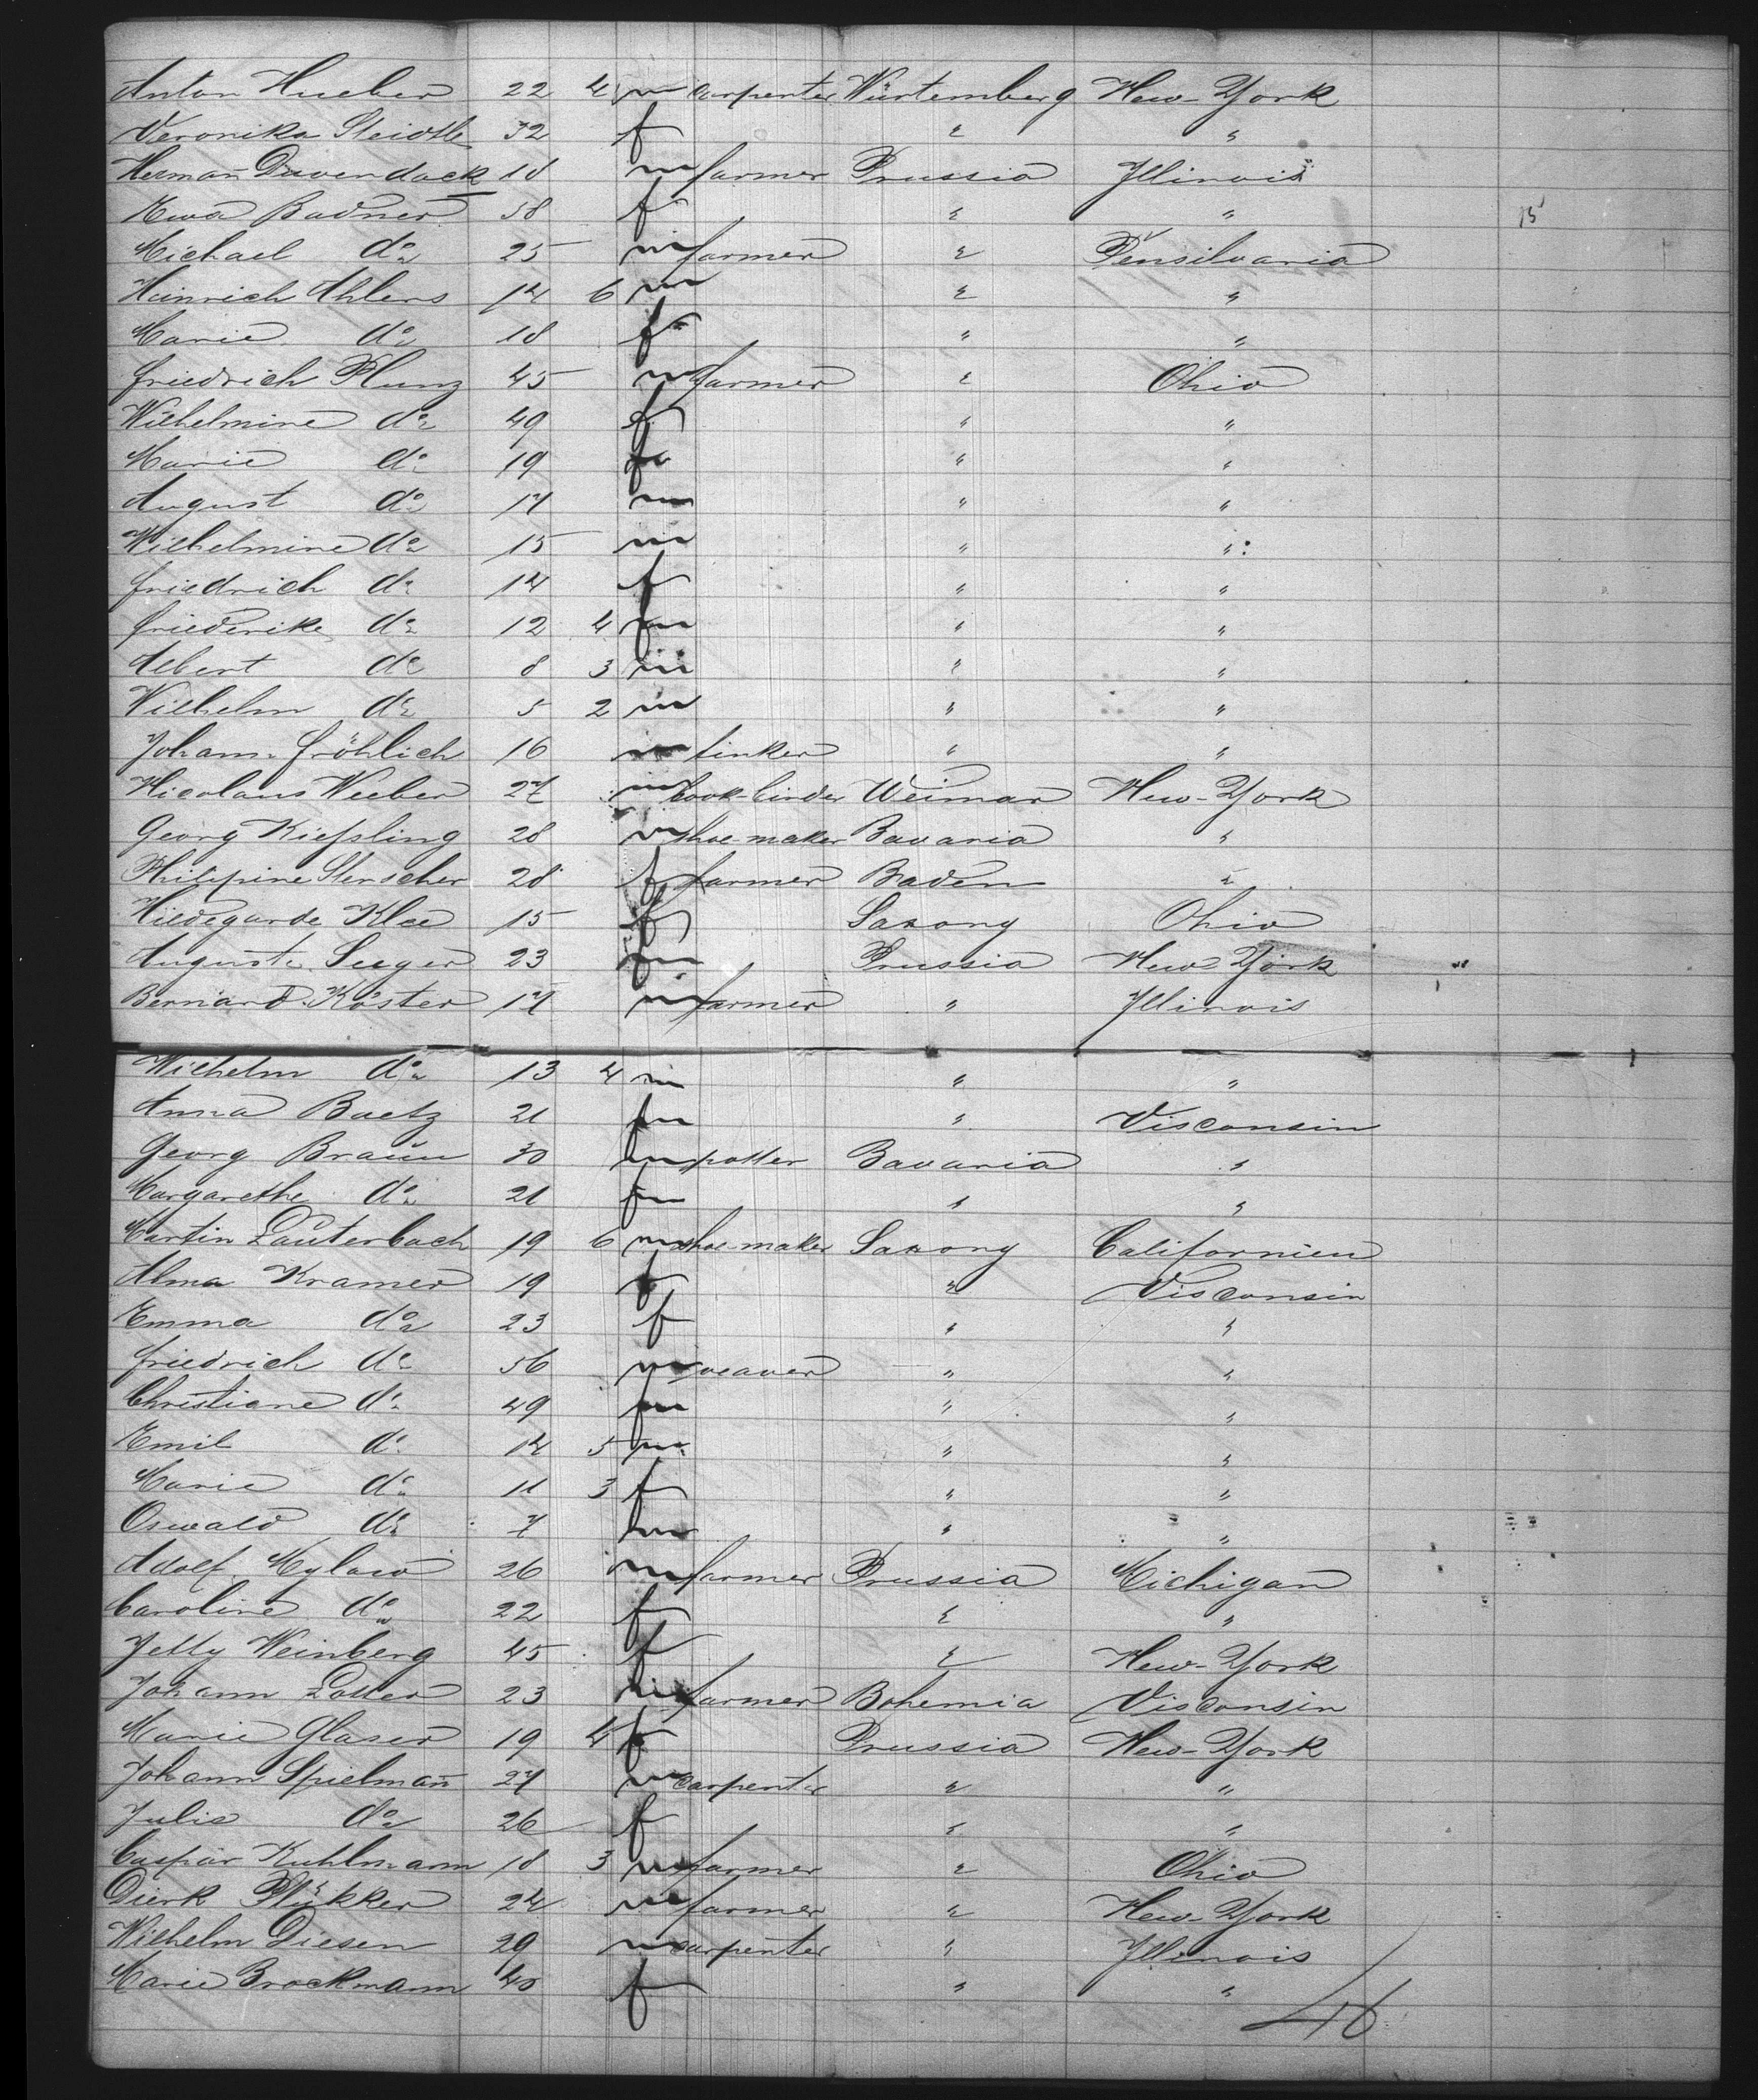 Anton Hueber 22 4 m carpenter Würtemberg New-York
Veronika Steidtle 32 f " "
Herman Duvendack 18 m farmer Prussia Illinois
Ewa Badner 58 f " " 15
Michael do 25 m farmer " Pensilvania
Heinrich Ahlers 14 6 m " "
Marie do 18 f " "
Friedrich Plunz 45 m farmer " Ohio
Wilhelmine do 49 f " "
Marie do 19 f " "
August do 17 m " "
Wilhelmine do 15 m " "
Friedrich do 14 f " "
Friederike do 12 4 f " "
Albert do 8 3 m " "
Wilhelm do 5 2 m " "
Johann Fröhlich 16 m tinker " "
Nicolaus Weeber 27 m book-binder Weimar New-York
Georg Kießling 28 m shoe-maker Bavaria "
Philippine Sterscher 28 f farmer Baden "
Hildegarde Klee 15 f Saxony Ohio
Auguste Seeger 23 f Prussia New-York
Bernard Köster 17 m farmer " Illinois
Wilhelm do 13 4 m " "
Anna Baetz 21 f " Visconsin
Georg Braun 30 m potter Bavaria "
Margarethe do 21 f " "
Martin Lauterbach 19 6 m shoe-maker Saxony Californien
Alma Kramer 19 f " Visconsin
Emma do 23 f " "
Friedrich do 56 m weaver " "
Christiane do 49 f " "
Emil do 14 5 m " "
Marie do 11 3 f " "
Oswald do 7 m " "
Adolf Mylaw 26 m farmer Prussia Michigan
Caroline do 22 f " "
Jetty Weinberg 45 f " New-York
Johann Lotter 23 m farmer Bohemia Visconsin
Marie Glaser 19 4 f Prussia New-York
Johann Spielman 27 m carpenter " "
Julie do 26 f " "
Caspar Kuhlmann 18 3 m farmer " Ohio
Dierk Plükker 24 m farmer " New-York
Wilhelm Diesen 29 m carpenter " Illinois
Marie Brockmann 40 f " "
46